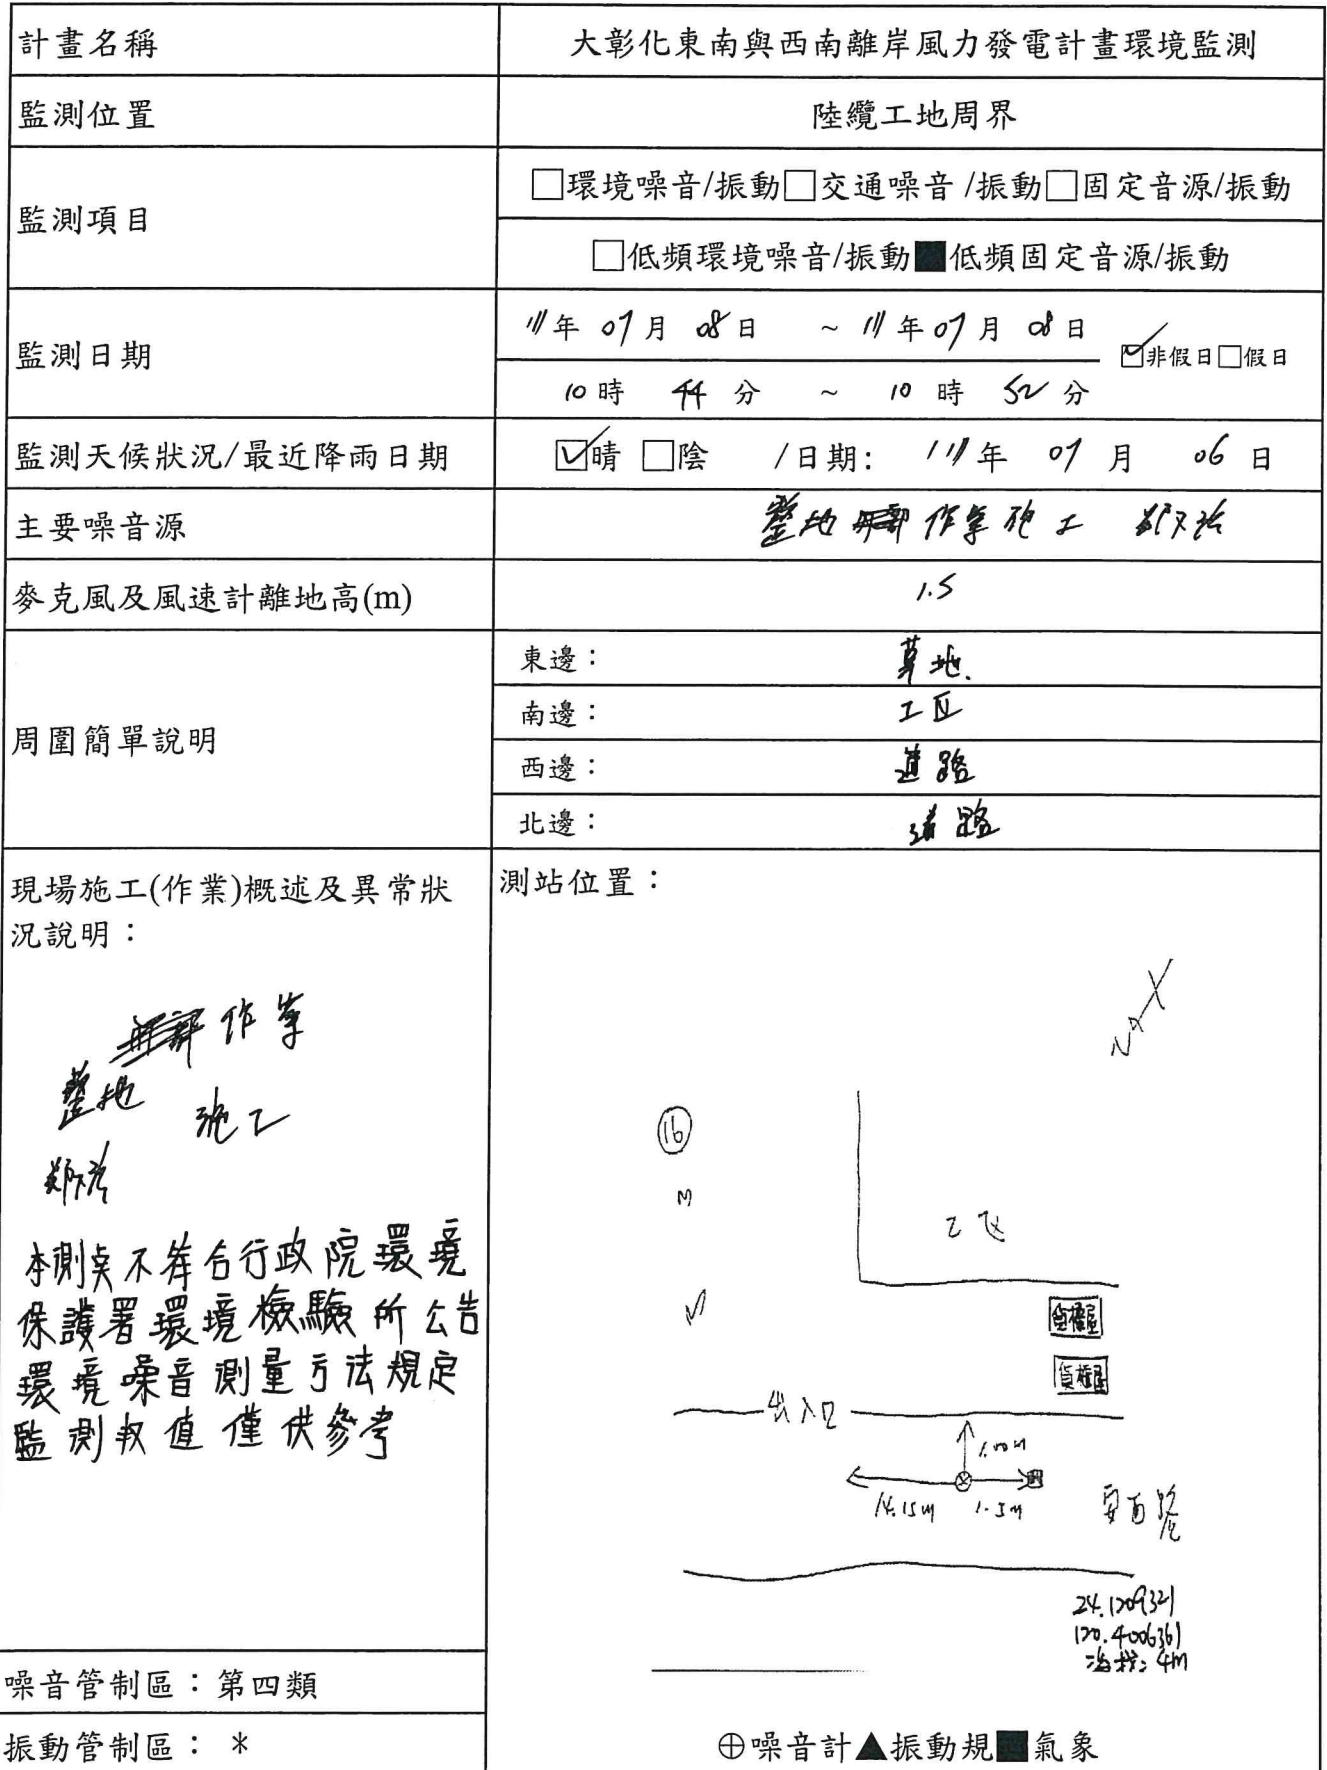 計畫名稱
大彰化東南與西南離岸風力發電計畫環境監測
監測位置
陸纜工地周界
監測項目
□環境噪音/振動□交通噪音 /振動□固定音源/振動
□低頻環境噪音/振動■低頻固定音源/振動
監測日期
111年 07月 08日 ~ 111年 07月 08日
10時 44分 ~ 10時 52分
☑非假日□假日
監測天候狀況/最近降雨日期
☑晴 □陰 /日期: 111年 07月 06日
主要噪音源
整地 作業施工
麥克風及風速計離地高(m)
1.5
周圍簡單說明
東邊： 草地
南邊： 工区
西邊： 道路
北邊： 道路
現場施工(作業)概述及異常狀
況說明：
作業
整地
施工
本測点不符合行政院環境
保護署環境檢驗所公告
環境噪音測量方法規定
監測数值僅供參考
測站位置：
N
16
M
工区
貨櫃屋
貨櫃屋
出入口
1.00M
14.15m
1.5m
24.1209321
120.4006361
海拔: 4m
噪音管制區：第四類
振動管制區： *
⊕噪音計▲振動規■氣象